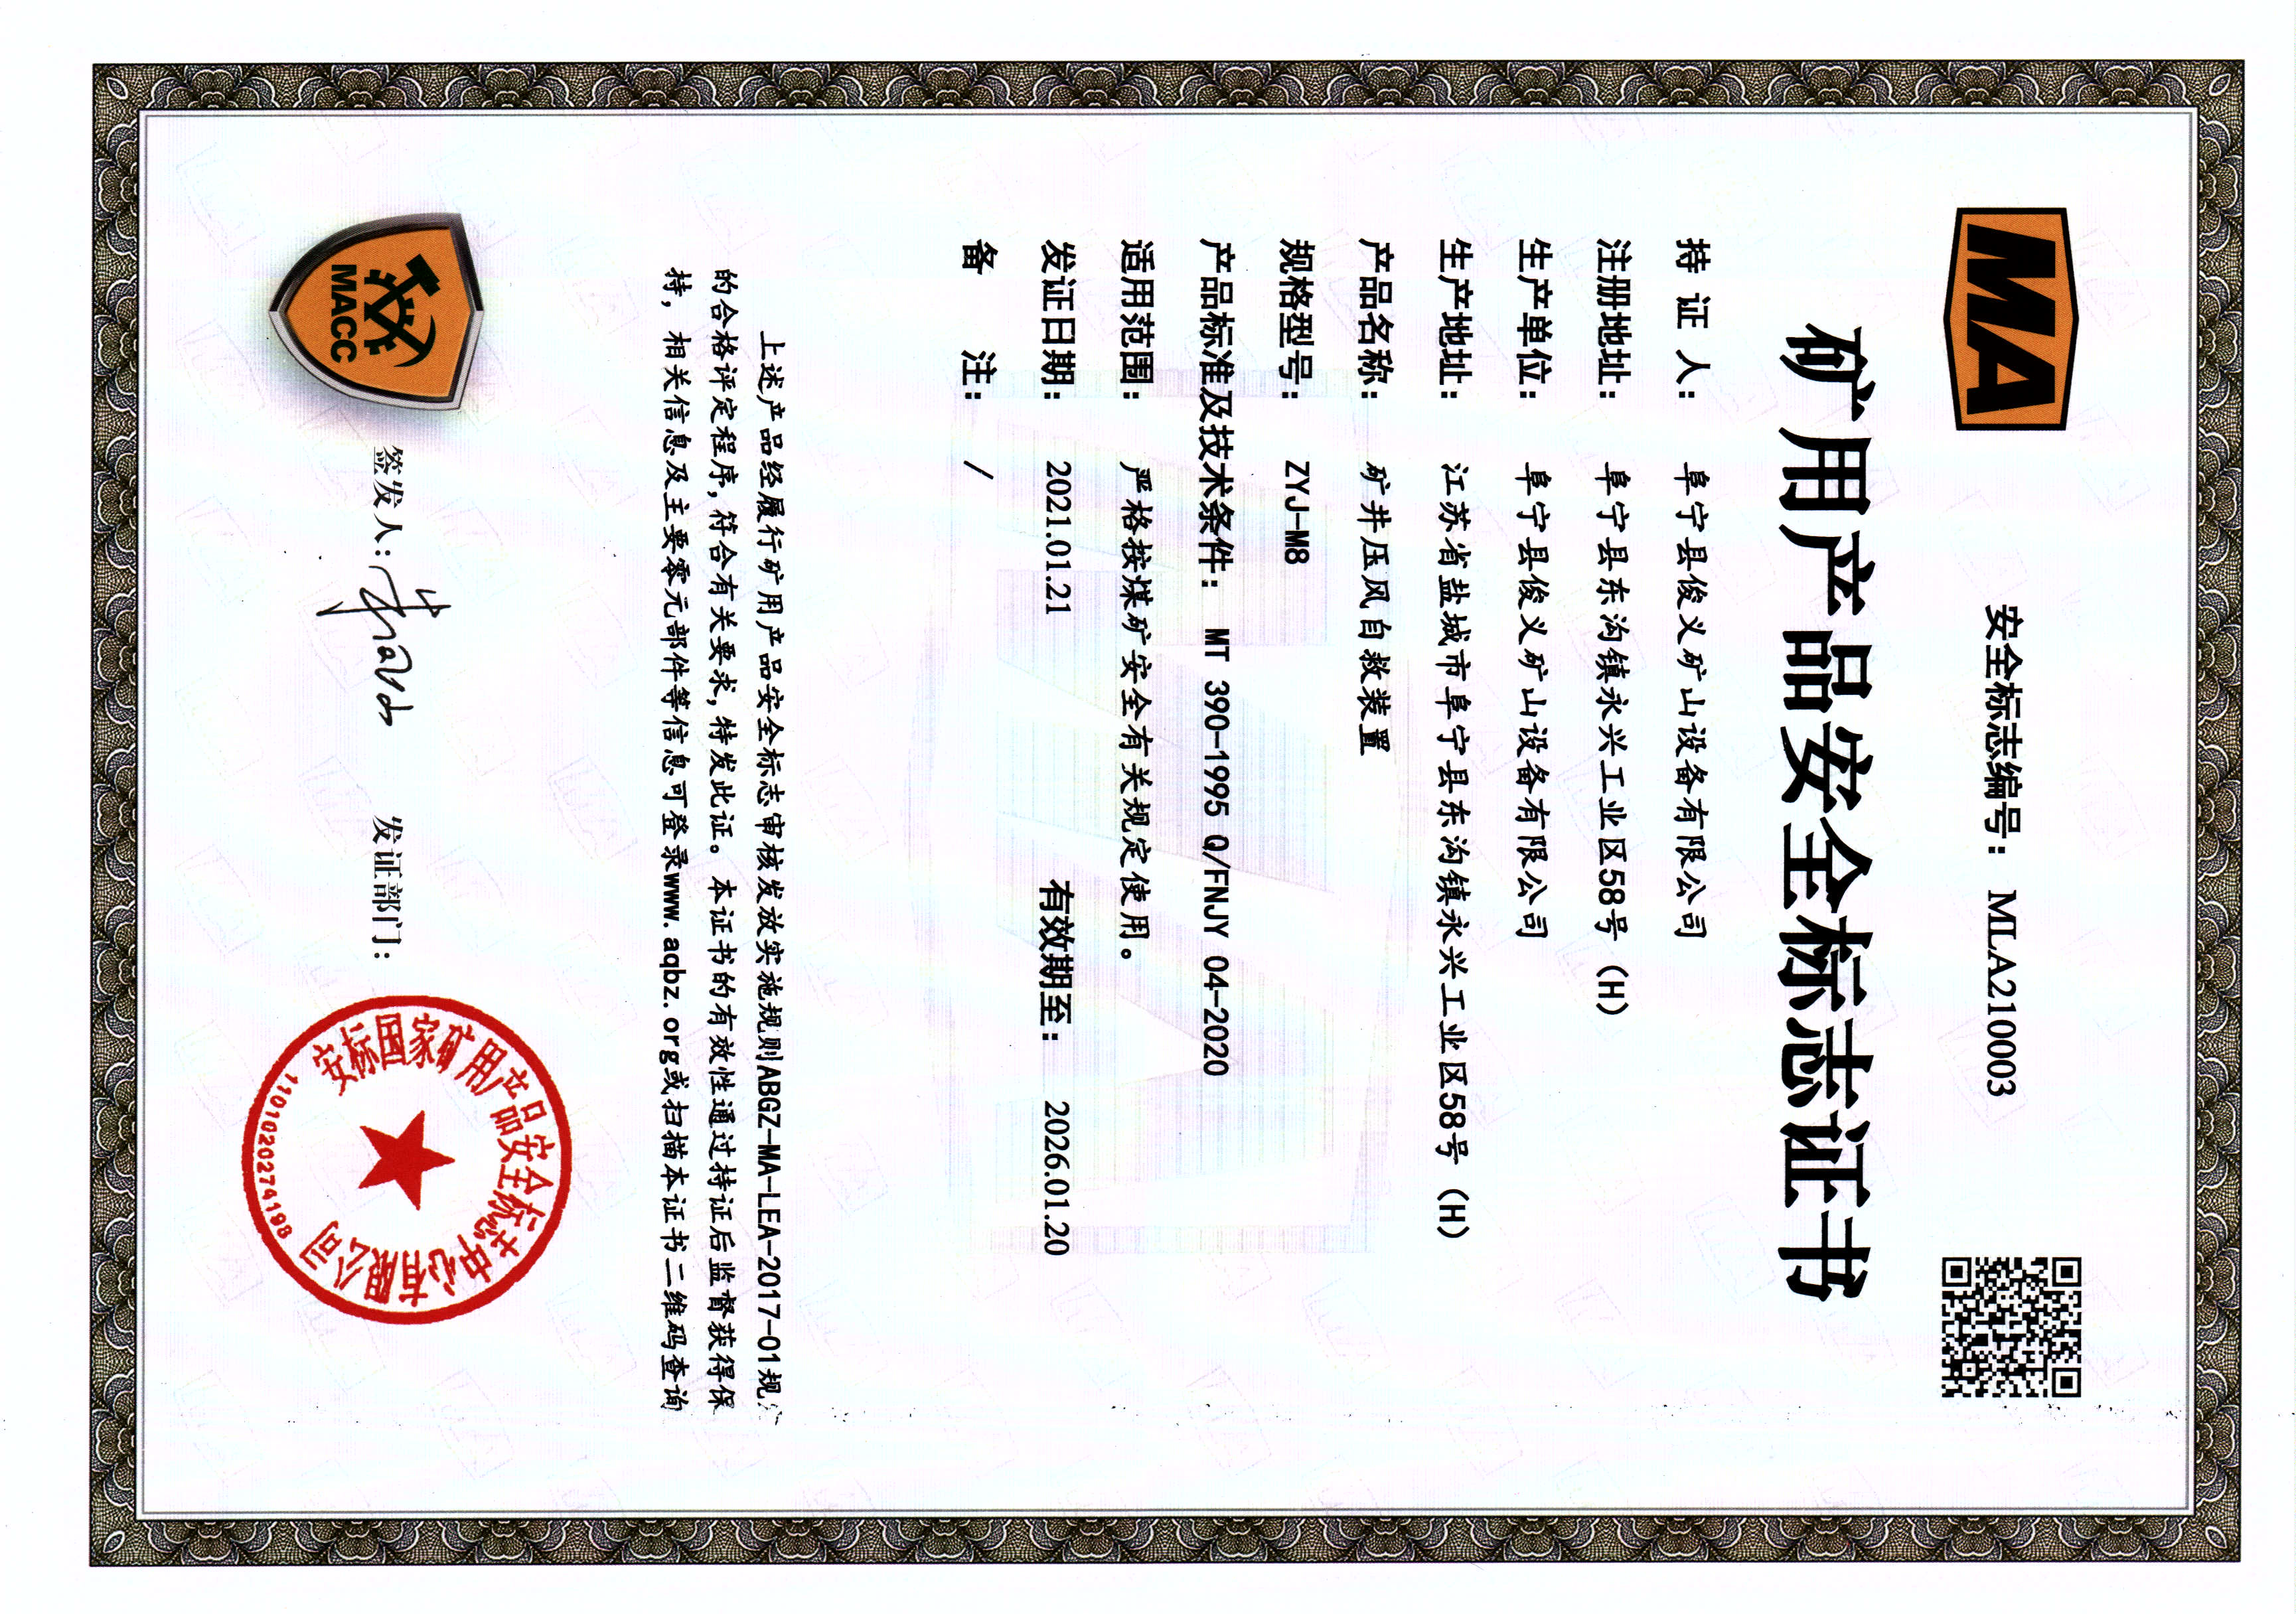 MA
安全标志编号：MLA210003
矿用产品安全标志证书
持 证 人： 阜宁县俊义矿山设备有限公司
注册地址： 阜宁县东沟镇永兴工业区58号（H）
生产单位： 阜宁县俊义矿山设备有限公司
生产地址： 江苏省盐城市阜宁县东沟镇永兴工业区58号（H）
产品名称： 矿井压风自救装置
规格型号： ZYJ-M8
产品标准及技术条件： MT 390-1995 Q/FNJY 04-2020
适用范围： 严格按煤矿安全有关规定使用。
发证日期： 2021.01.21 有效期至： 2026.01.20
备 注： /
上述产品经履行矿用产品安全标志审核发放实施规则ABGZ-MA-LEA-2017-01规定
的合格评定程序，符合有关要求，特发此证。本证书的有效性通过持证后监督获得保
持，相关信息及主要零元部件等信息可登录www.aqbz.org或扫描本证书二维码查询
MACC
签发人： 发证部门：
安标国家矿用产品安全标志中心有限公司
1101020274198